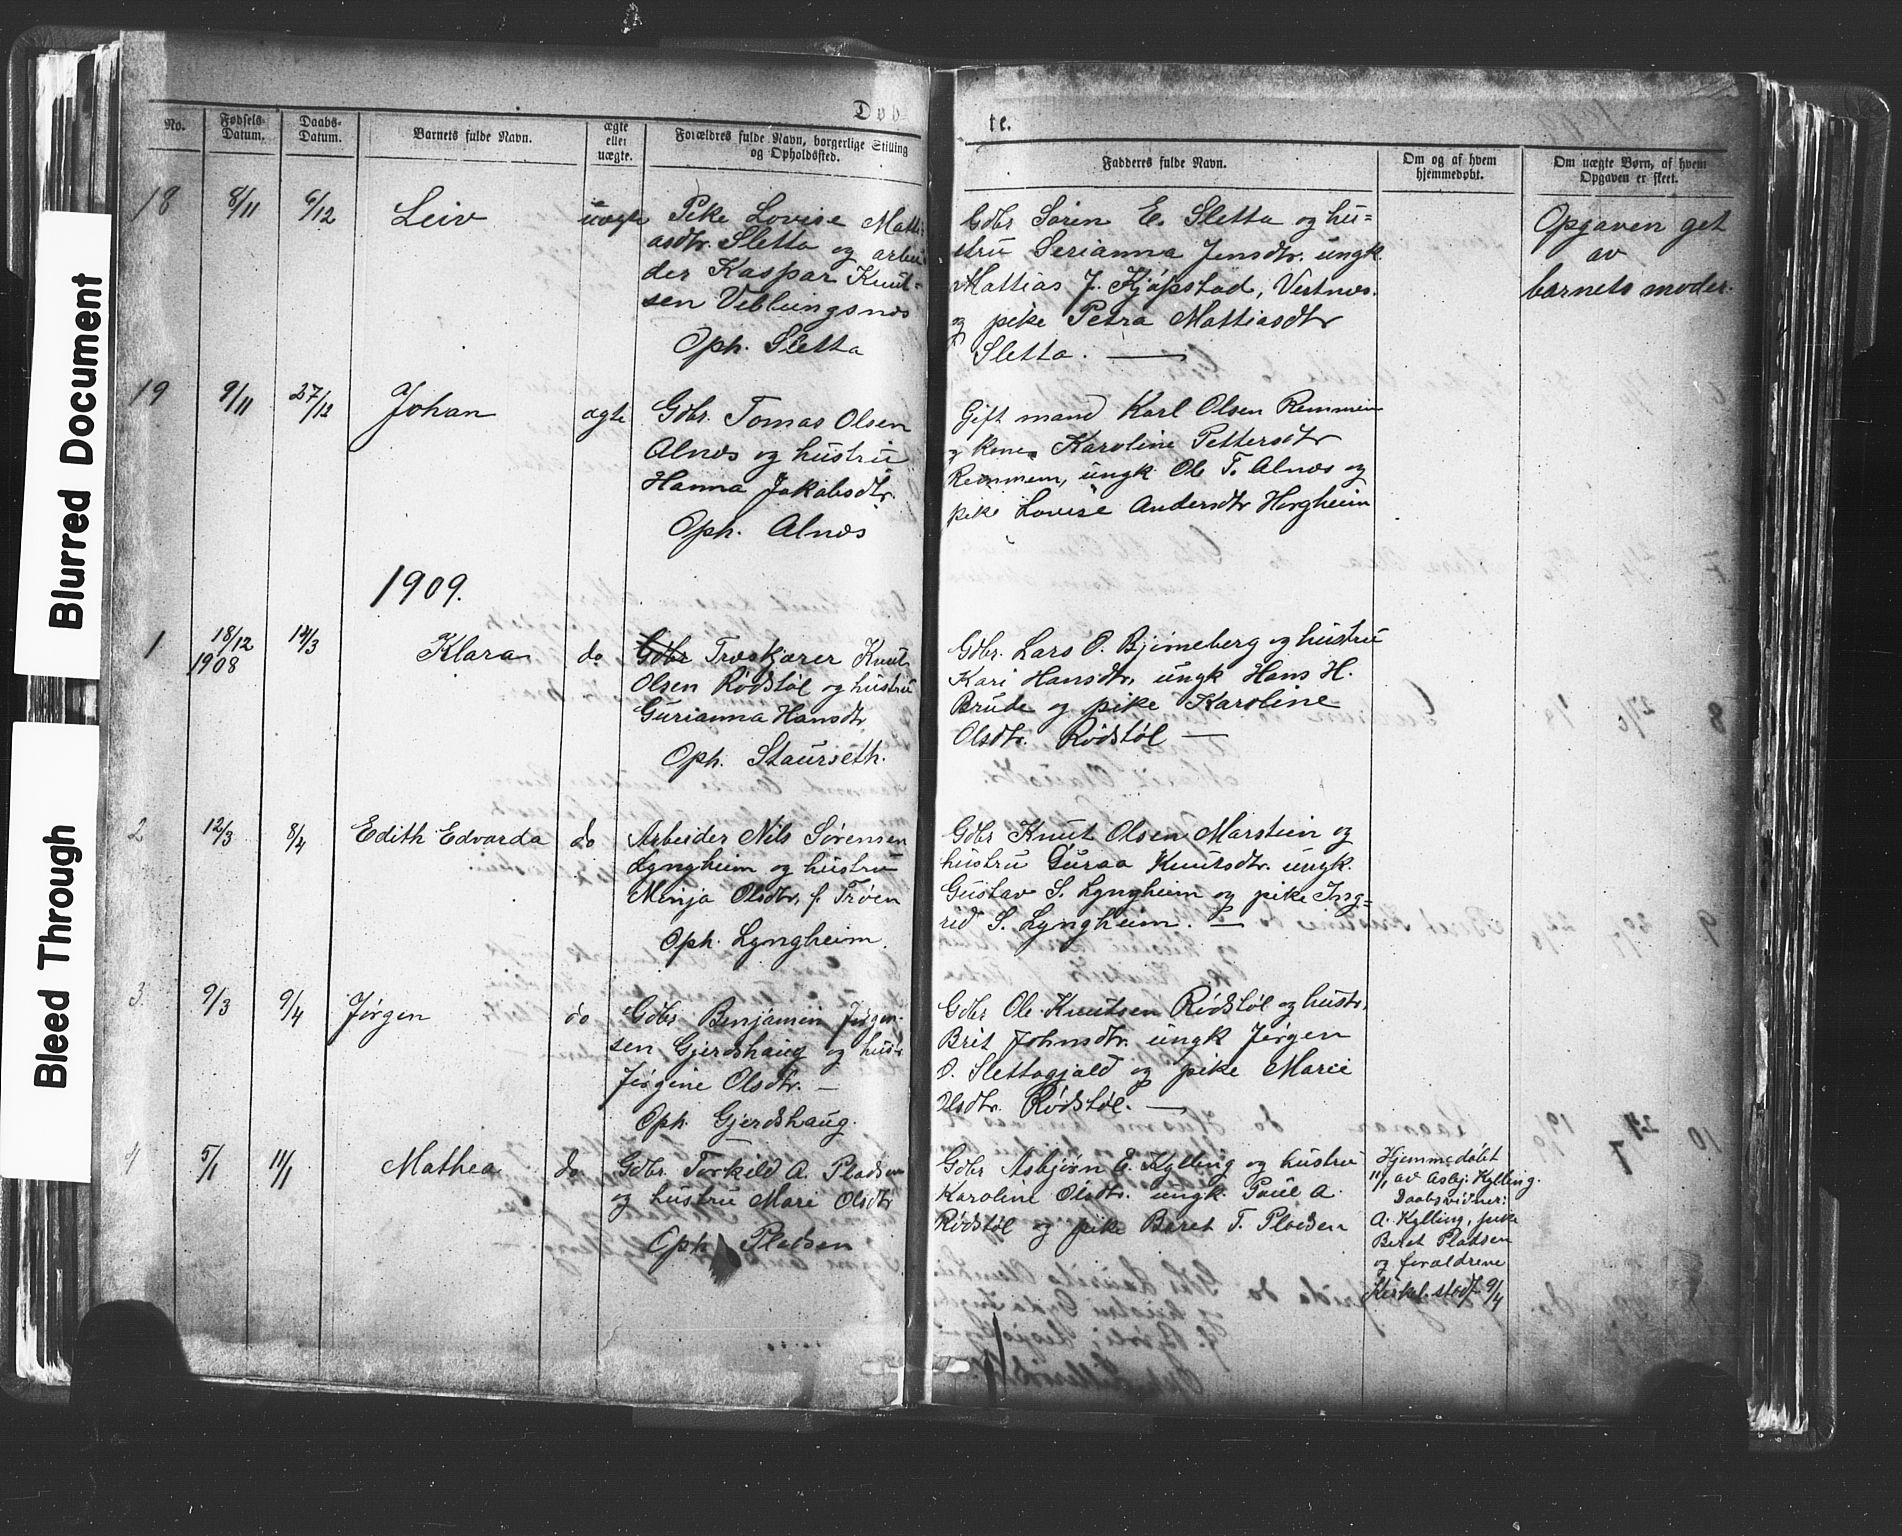 Blurred Document
Bleed Through
Døb
te.
No.
Fødsels Datum.
Daabs-Datum.
Barnets fulde Navn.
ægte eller uægte.
Forældres fulde Navn, borgerlige Stilling og Opholdssted.
Fadderes fulde Navn.
Om og af hvem hjemmedøbt.
Om uægte Børn, af hvem Opgaven er skeet.
18
8/11
6/12
Leiv
uægte
Pike Lovise Matti-
asdtr. Sletta og arbei
der Kaspar Knut-
sen Veblungsnæs
Oph. Sletta
Gdbr Søren E. Sletta og hu=
stru Serianna Jensdtr. ungk.
Mattias J. Kjøpstad, Vestnes.
og pike Petra Mattiasdtr
Sletta.
Opgaven get
av
barnets moder.
19
9/11
27/12
Johan
ægte
Gdbr. Tomas Olsen
Alnæs og hustru
Hanna Jakobsdtr.
Oph. Alnæs
Gift mand Karl Olsen Remmem
og kone Karoline Pettersdtr
Remmem, ungk Ole T. Alnæs og
pike Lovise Andersdtr Horgheim
1909.
1
18/12
1908
14/3
Klara
do
Gdbr Træskjærer Knut
Olsen Rødstøl og hustru
Gurianna Hansdtr
Oph. Staurseth.
Gdbr. Lars O. Bjørneberg og hustru
Kari Hansdtr, ungk Hans H.
Brude og pike Karoline
Olsdtr. Rødstøl
2
12/3
8/4
Edith Edvarda
do
Arbeider Nils Sørensen
Lyngheim og hustru
Minja Olsdtr, f. Trøen
Oph. Lyngheim.
Gdbr Knut Olsen Marstein og
hustru Guraa Knutsdtr. ungk.
Gustav S. Lyngheim og pike Ing=
rid S. Lyngheim.
3
9/3
9/4
Jørgen
do
Gdbr Benjamin Jørgen-
sen Gjerdshaug og hustr
Jørgine Olsdtr.
Oph. Gjerdshaug.
Gdbr Ole Knutsen Rødstøl og hustr.
Brit Johnsdtr. ungk Jørgen
O. Slettagjald og pike Marie
Olsdtr. Rødstøl.
4
5/1
11/1
Mathea
do
Gdbr. Torkild A. Pladsen
og hustru Mari Olsdtr
Oph. Pladsen
Gdbr Asbjørn E. Kylling og hustru
Karoline Olsdtr. ungk. Paul A.
Rødstøl og pike Beret T. Pladsen
Hjemmedøbt
11/1 av Asbj. Kylling.
Daabsvidner:
A. Kylling, pike
Beret Pladsen
og forældrene
Kirkl. stadf 9/4